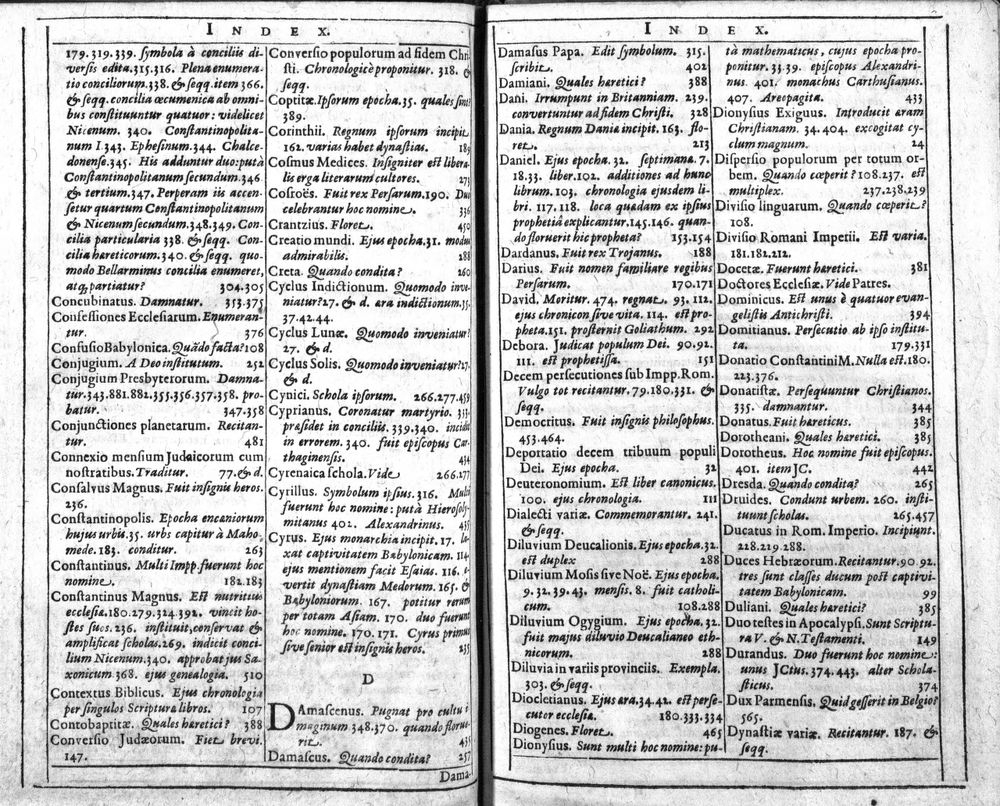 INDEX.
179.319.339. symbola à conciliis di-
versis edita.315.316. Plena enumera-
tio conciliorum.338. & seqq. item 366.
& seqq. concilia œcumenica ab omni-
bus constituuntur quatuor: videlicet
Nicenum. 340. Constantinopolita-
num I.343. Ephesinum.344. Chalce-
donense.345. His adduntur duo: putà
Constantinopolitanum secundum.346
& tertium.347. Perperam iis accen-
setur quartum Constantinopolitanum
& Nicenum secundum.348.349. Con-
cilia particularia 338. & seqq. Con-
cilia hæreticorum.340. & seqq. quo-
modo Bellarminus concilia enumeret,
atq; partiatur? 304.305
Concubinatus. Damnatur. 353.375
Confessiones Ecclesiarum. Enumeran-
tur. 376
Confusio Babylonica. Quādo facta? 108
Conjugium. A Deo institutum. 252
Conjugium Presbyterorum. Damna-
tur.343.881.882.355.356.357.358. pro-
batur. 347.358
Conjunctiones planetarum. Recitan-
tur. 481
Connexio mensium Judaicorum cum
nostratibus. Traditur. 77. & d.
Consalvus Magnus. Fuit insignis heros.
236.
Constantinopolis. Epocha encæniorum
hujus urbis.35. urbs capitur à Maho-
mede.183. conditur. 263
Constantinus. Multi Impp. fuerunt hoc
nomine. 182.183
Constantinus Magnus. Est nutritius
ecclesiæ.180.279.324.392. vincit ho-
stes suos.236. instituit, conservat &
amplificat scholas.269. indicit conci-
lium Nicenum.340. approbat jus Sa-
xonicum.368. ejus genealogia. 510
Contextus Biblicus. Ejus chronologia
per singulos Scripturæ libros. 107
Contobaptitæ. Quales hæretici? 388
Conversio Judæorum. Fiet brevi.
147.
Conversio populorum ad fidem Chri-
sti. Chronologicè proponitur. 318. &
seqq.
Coptitæ. Ipsorum epocha.35. quales sint?
389.
Corinthii. Regnum ipsorum incipit
162. varias habet dynastias. 189
Cosmus Medices. Insigniter est libera-
lis erga literarum cultores. 273
Cosroës. Fuit rex Persarum.190. Duo
celebrantur hoc nomine. 336
Crantzius. Floret. 450
Creatio mundi. Ejus epocha.31. modus
admirabilis. 288
Creta. Quando condita? 260
Cyclus Indictionum. Quomodo inve-
niatur?27. & d. æra indictionum.35.
37.42.44.
Cyclus Lunæ. Quomodo inveniatur?
27. & d.
Cyclus Solis. Quomodo inveniatur?27.
& d.
Cynici. Schola ipsorum. 266.277.459
Cyprianus. Coronatur martyrio. 333.
præsidet in conciliis.339.340. incidit
in errorem.340. fuit episcopus Car-
thaginensis. 434
Cyrenaica schola. Vide 266.277
Cyrillus. Symbolum ipsius.316. Multi
fuerunt hoc nomine: putà Hierosoly-
mitanus 402. Alexandrinus. 435
Cyrus. Ejus monarchia incipit.17. la-
xat captivitatem Babylonicam. 114
ejus mentionem facit Esaias. 116.
vertit dynastiam Medorum.165. &
Babyloniorum. 167. potitur rerum
per totam Asiam. 170. duo fuerunt
hoc nomine. 170.171. Cyrus primus
sive senior est insignis heros. 235
D
DAmascenus. Pugnat pro cultu i-
maginum 348.370. quando florue-
rit. 435
Damascus. Quando condita? 257
Dama-
INDEX.
Damasus Papa. Edit symbolum. 315.
scribit. 402
Damiani. Quales hæretici? 388
Dani. Irrumpunt in Britanniam. 239.
convertuntur ad fidem Christi. 328
Dania. Regnum Daniæ incipit. 163. flo-
ret. 213
Daniel. Ejus epocha. 32. septimanæ. 7.
18.33. liber.102. additiones ad hunc
librum.103. chronologia ejusdem li-
bri. 117.118. loca quædam ex ipsius
prophetiâ explicantur.145.146. quan-
do floruerit hic propheta? 153.154
Dardanus. Fuit rex Trojanus. 188
Darius. Fuit nomen familiare regibus
Persarum. 170.171
David. Moritur. 474. regnat. 93.112.
ejus chronicon sive vita. 114. est pro-
pheta.151. prosternit Goliathum. 292
Debora. Judicat populum Dei. 90.92.
111. est prophetissa. 151
Decem persecutiones sub Impp. Rom.
Vulgo tot recitantur. 79.180.331. &
seqq.
Democritus. Fuit insignis philosophus.
453.464.
Deportatio decem tribuum populi
Dei. Ejus epocha. 32
Deuteronomium. Est liber canonicus.
100. ejus chronologia. 111
Dialecti variæ. Commemorantur. 241.
& seqq.
Diluvium Deucalionis. Ejus epocha.32.
est duplex 288
Diluvium Mosis sive Noë. Ejus epocha.
9.32.39.43. mensis. 8. fuit catholi-
cum. 108.288
Diluvium Ogygium. Ejus epocha.32.
fuit majus diluvio Deucalianeo eth-
nicorum. 288
Diluvia in variis provinciis. Exempla.
303. & seqq.
Diocletianus. Ejus æra.34.42. est perse-
cutor ecclesiæ. 180.333.334
Diogenes. Floret. 465
Dionysius. Sunt multi hoc nomine: pu-
tà mathematicus, cujus epocha pro-
ponitur. 33.39. episcopus Alexandri-
nus. 401. monachus Carthusianus.
407. Areopagita. 433
Dionysius Exiguus. Introducit æram
Christianam. 34.404. excogitat cy-
clum magnum. 24
Dispersio populorum per totum or-
bem. Quando cœperit? 108.237. est
multiplex. 237.238.239
Divisio linguarum. Quando cœperit?
108.
Divisio Romani Imperii. Est varia.
181.182.212.
Docetæ. Fuerunt hæretici. 381
Doctores Ecclesiæ. Vide Patres.
Dominicus. Est unus è quatuor evan-
gelistis Antichristi. 394
Domitianus. Persecutio ab ipso institu-
ta. 179.331
Donatio Constantini M. Nulla est.180.
223.376.
Donatistæ. Persequuntur Christianos.
335. damnantur. 344
Donatus. Fuit hæreticus. 385
Dorotheani. Quales hæretici. 385
Dorotheus. Hoc nomine fuit episcopus.
401. item JC. 442
Dresda. Quando condita? 265
Druides. Condunt urbem. 260. insti-
tuunt scholas. 265.457
Ducatus in Rom. Imperio. Incipiunt.
228.219.288.
Duces Hebræorum. Recitantur.90.92.
tres sunt classes ducum post captivi-
tatem Babylonicam. 99
Duliani. Quales hæretici? 385
Duo testes in Apocalypsi. Sunt Scriptu-
ra V. & N. Testamenti. 149
Durandus. Duo fuerunt hoc nomine:
unus JCtus. 374.443. alter Schola-
sticus. 374
Dux Parmensis. Quid gesserit in Belgio?
565.
Dynastiæ variæ. Recitantur. 187. &
seqq.